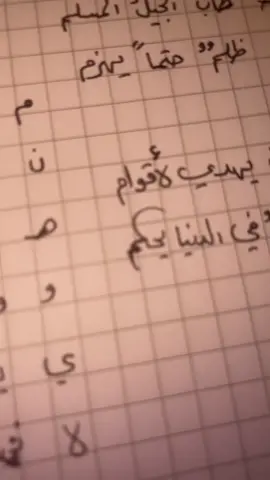 طاب الجيل المسلم
ظلم" حتما" يهزم
م
ن
يهدي لأقوام
ه
في الدنيا يحكم
و
ي
لا